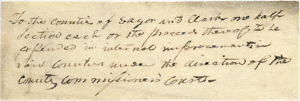 To the counties of Edgar and Clark one half
section each or the proceeds thereof to be
expended in internal improvements in
said Counties under the direction of the
County Commissioners Courts